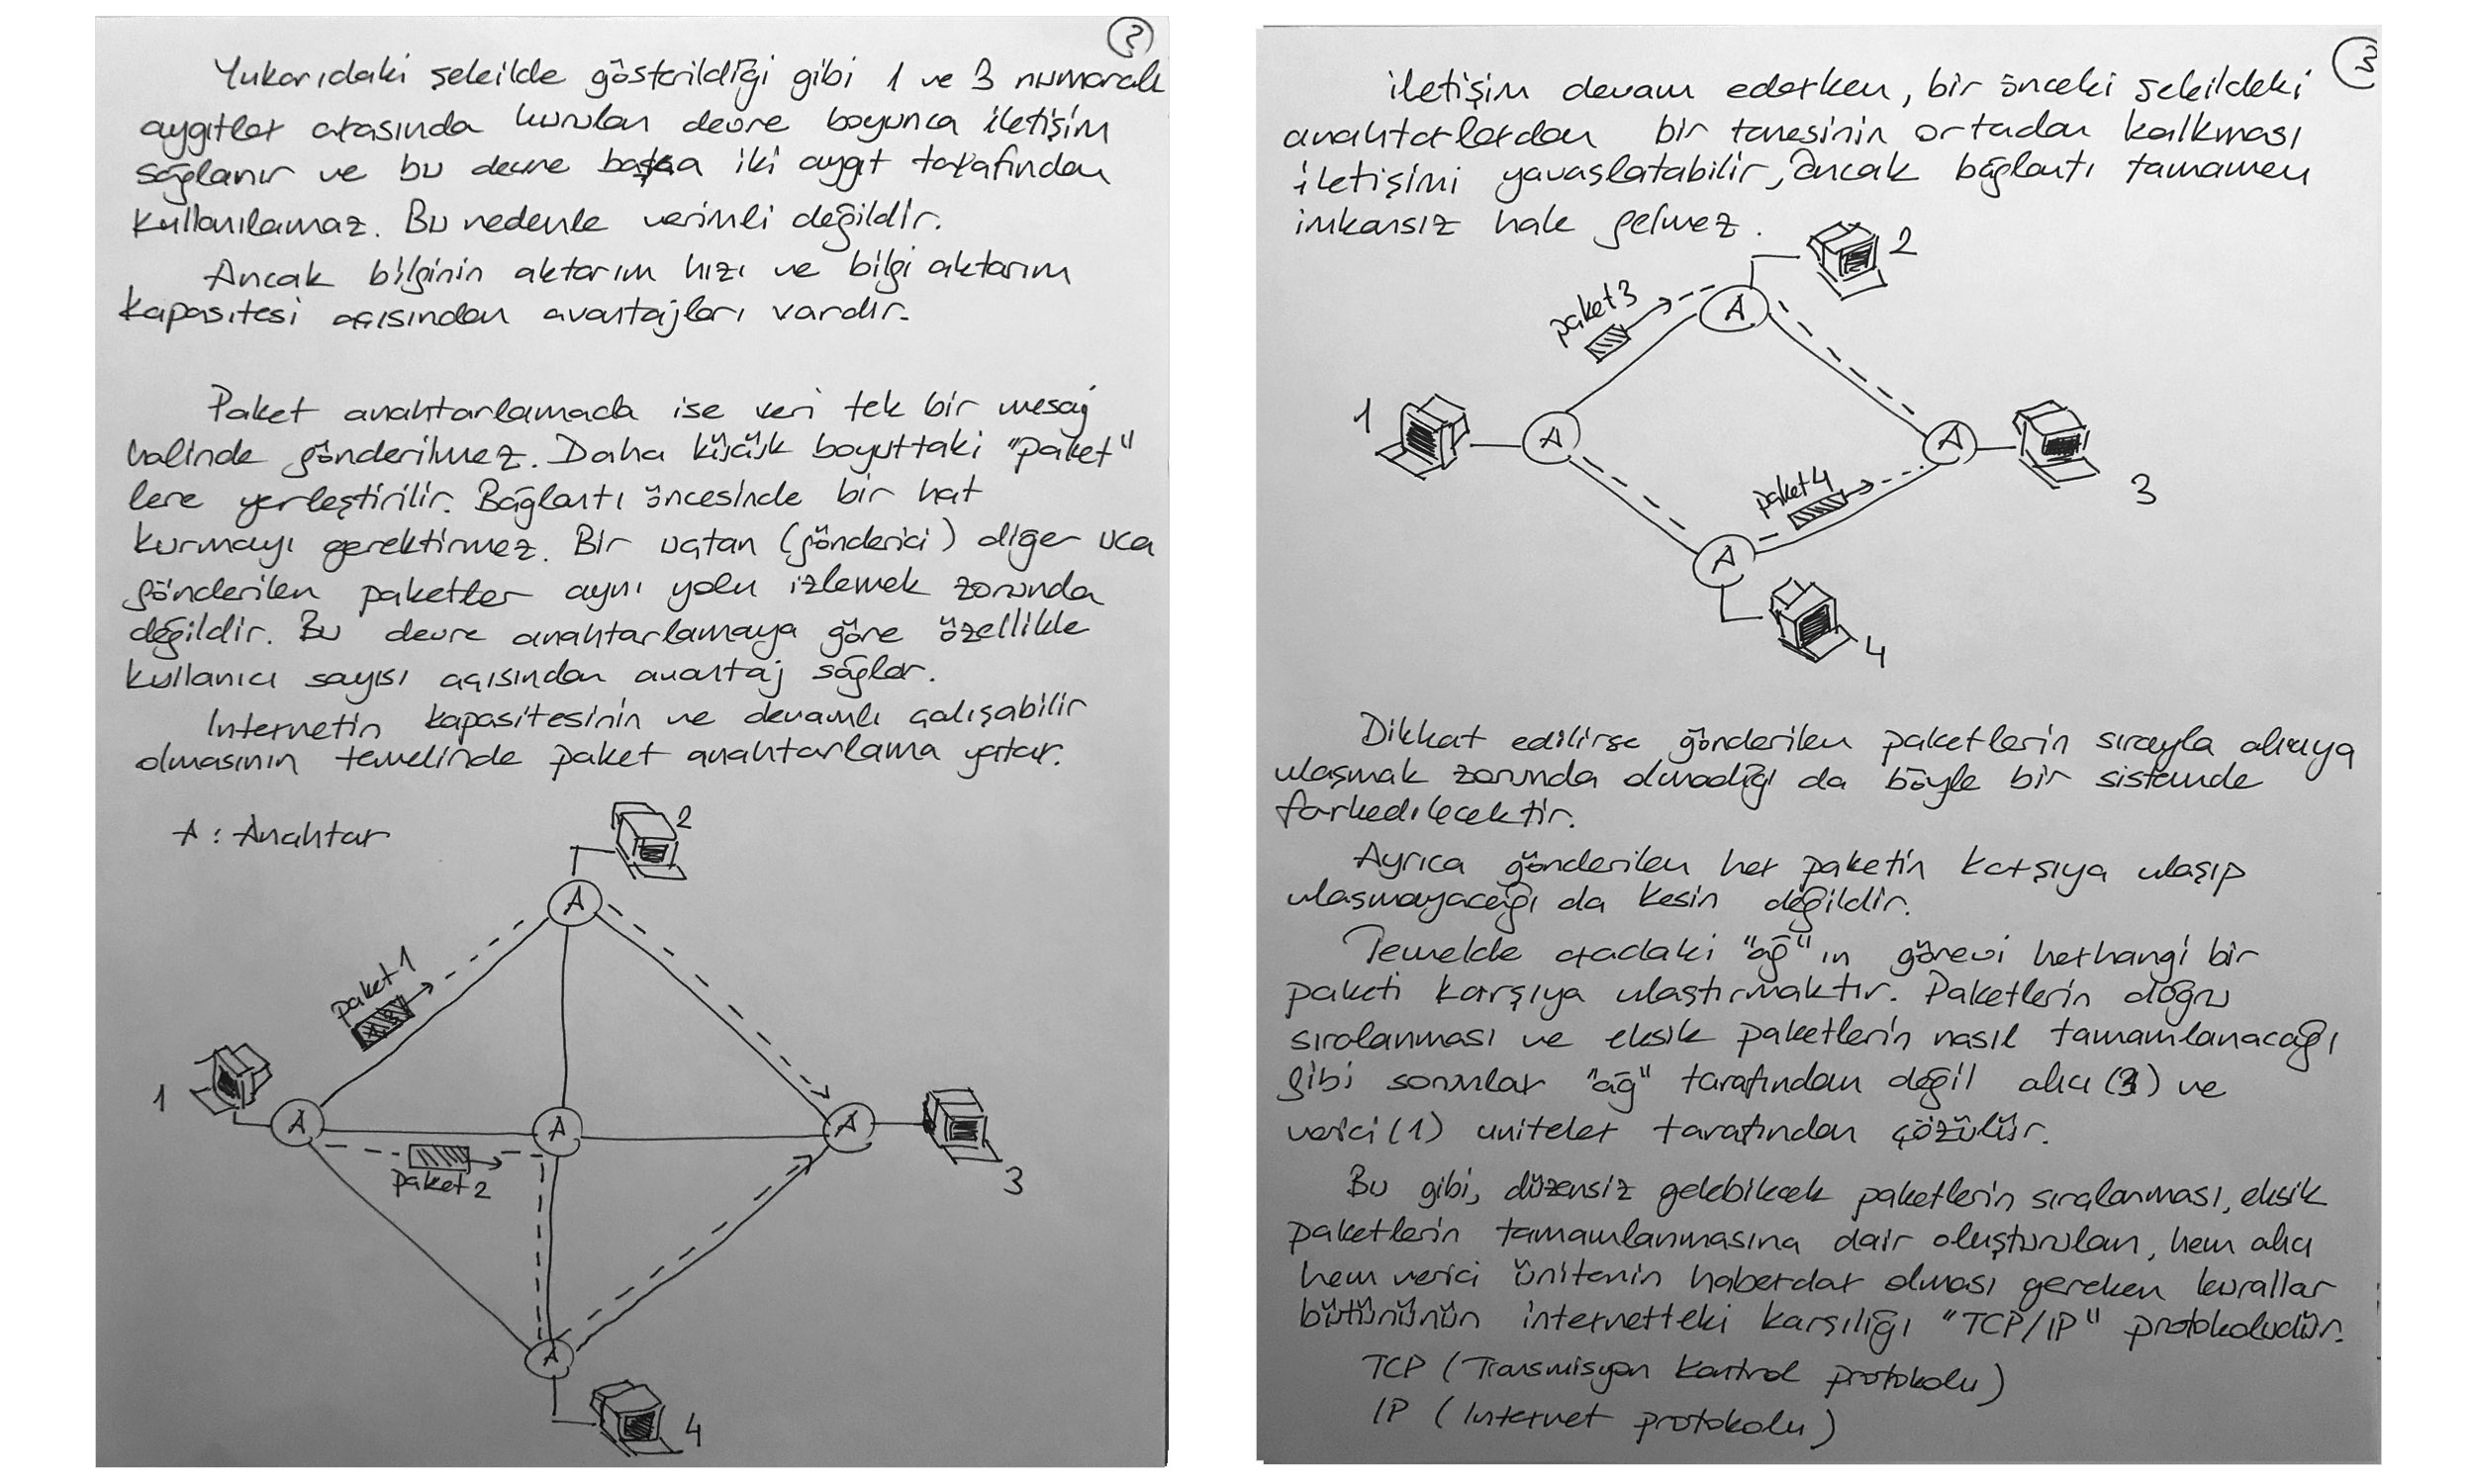 2
Yukarıdaki şekilde gösterildiği gibi 1 ve 3 numaralı
aygıtlar arasında kurulan devre boyunca iletişim
sağlanır ve bu devre başka iki aygıt tarafından
kullanılamaz. Bu nedenle verimli değildir.
Ancak bilginin aktarım hızı ve bilgi aktarım
kapasitesi açısından avantajları vardır.
Paket anahtarlamada ise veri tek bir mesaj
halinde gönderilmez. Daha küçük boyuttaki "paket"
lere yerleştirilir. Bağlantı öncesinde bir hat
kurmayı gerektirmez. Bir uçtan (gönderici) diğer uca
gönderilen paketler aynı yolu izlemek zorunda
değildir. Bu devre anahtarlamaya göre özellikle
kullanıcı sayısı açısından avantaj sağlar.
Internetin kapasitesinin ve devamlı çalışabilir
olmasının temelinde paket anahtarlama yatar.
A : Anahtar
2
A
paket 1
1
A
A
A
paket 2
3
A
4
3
iletişim devam ederken, bir önceki şekildeki
anahtarlardan bir tanesinin ortadan kalkması
iletişimi yavaşlatabilir, ancak bağlantı tamamen
imkansız hale gelmez.
2
paket 3
A
1
A
A
paket 4
3
A
4
Dikkat edilirse gönderilen paketlerin sırayla alıcıya
ulaşmak zorunda olmadığı da böyle bir sistemde
farkedilecektir.
Ayrıca gönderilen her paketin karşıya ulaşıp
ulaşmayacağı da kesin değildir.
Temelde aradaki "ağ"ın görevi herhangi bir
paketi karşıya ulaştırmaktır. Paketlerin doğru
sıralanması ve eksik paketlerin nasıl tamamlanacağı
gibi sorunlar "ağ" tarafından değil alıcı (3) ve
verici (1) uniteler tarafından çözülür.
Bu gibi, düzensiz gelebilecek paketlerin sıralanması, eksik
paketlerin tamamlanmasına dair oluşturulan, hem alıcı
hem verici ünitenin haberdar olması gereken kurallar
bütününün internetteki karşılığı "TCP/IP" protokoludür.
TCP (Transmisyon Kontrol protokolu)
IP (Internet protokolu)